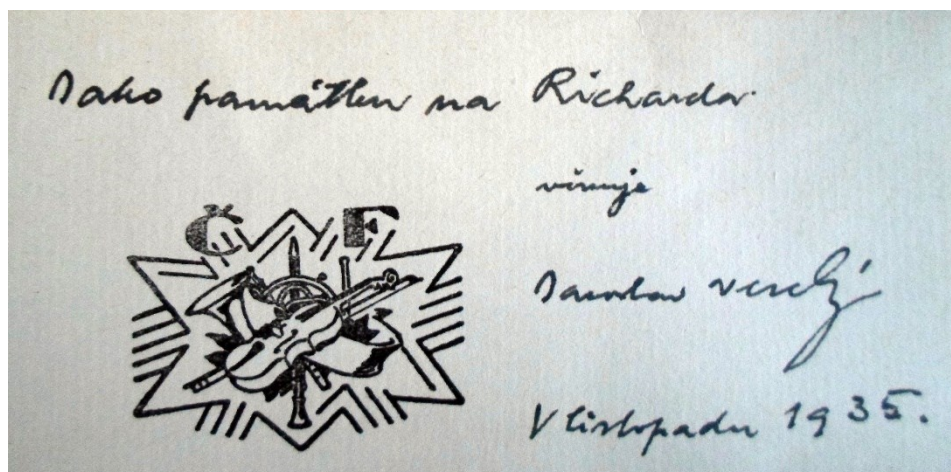 Jako památku na Richarda
věnuje
Č F
Jaroslav Veselý
V listopadu 1935.